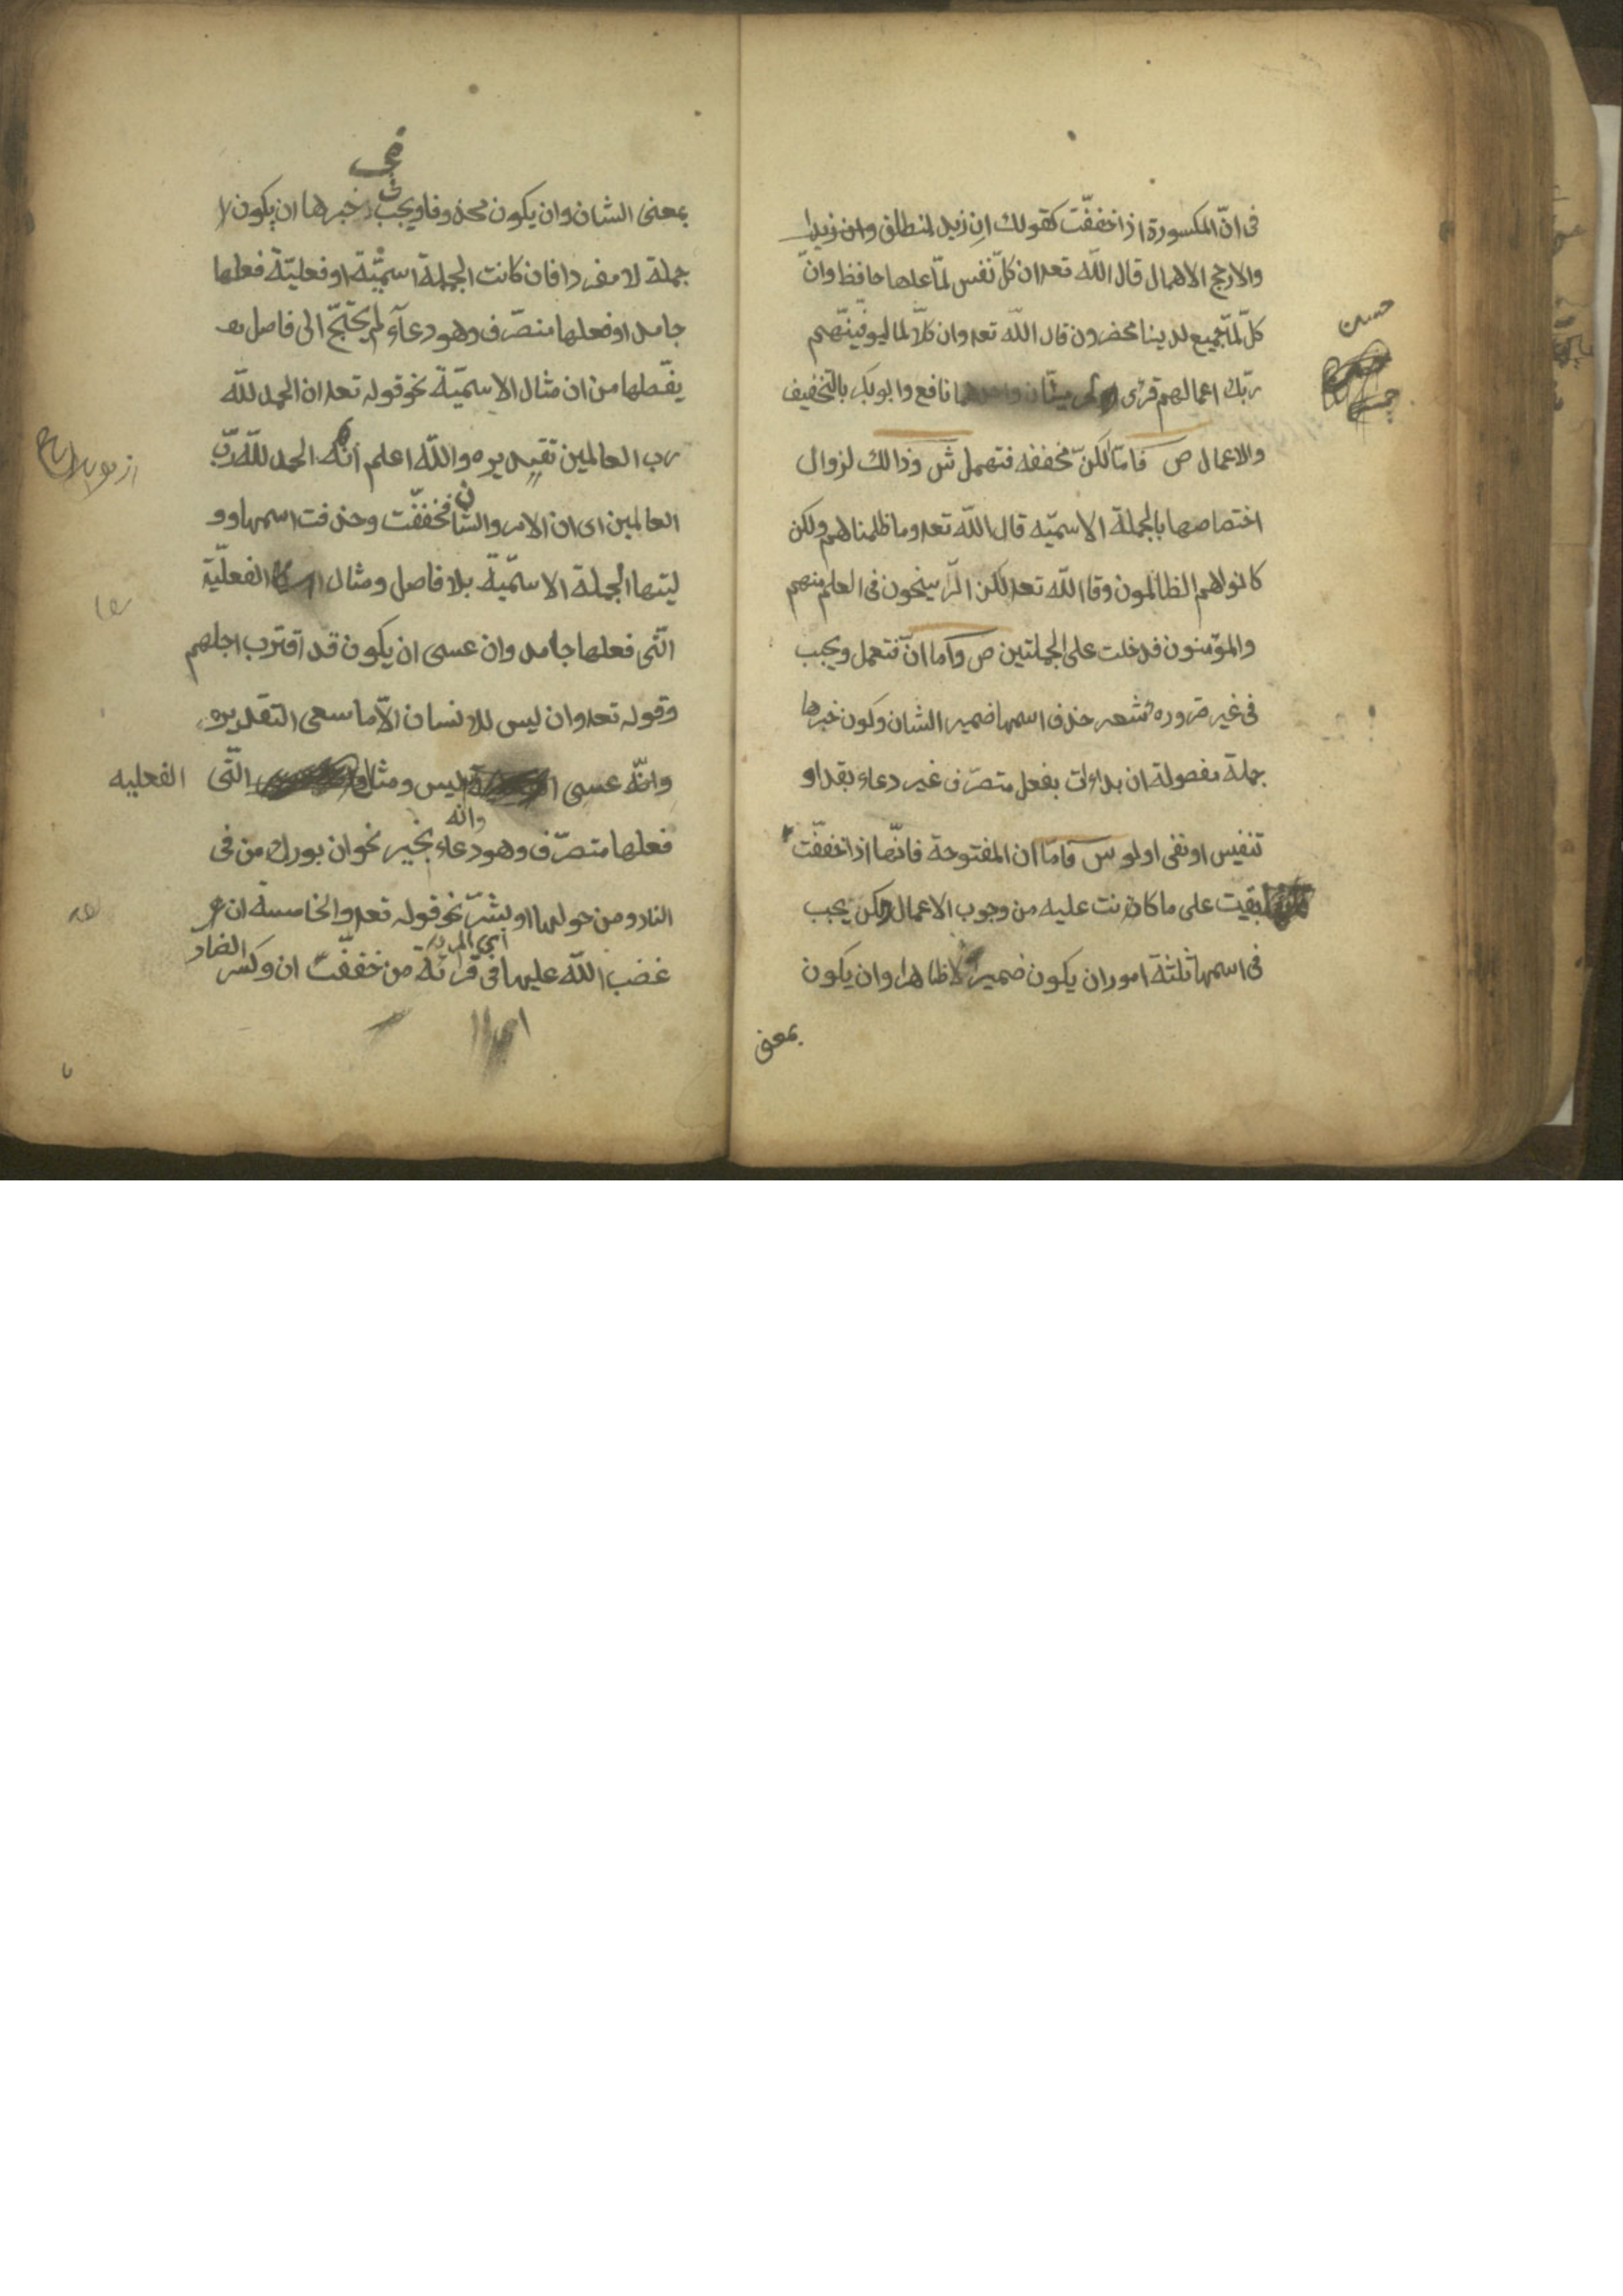 فى انّ المكسورة اذا خففّت كقولك ان زيد لمنطلق وان زيدا
والارجح الاهمال قال اللّه تعد ان كلّ نفس لمّا علها حافظ وانّ
كلّ لمّا جميع لدينا محضرون قال اللّه تعد وان كلّا لما ليوفينّهم
ربّك اعمالهم قرئ نافع وابو بكر بالتخفيف
والاعمال ص فامّا لكنّ مخففه فتهمل ش وذالك لزوال
اختصاصها بالجملة الاسميّه قال اللّه تعد وما ظلمناهم ولكن
كانوا هم الظالمون وقا اللّه تعد لكن الرّاسيخون فى العلم منهم
والمؤمنون فدخلت على الجملتين ص وامّا انّ فتعمل ويجب
فى غير ضروره شعر حذف اسمها ضمير الشان وكون خبرها
جملة مفصولة ان بدات بفعل متصرّف غير دعاء بقد او
تنفيس او نفى او لو س فامّا ان المفتوحة فانّها اذا خففّت
بقيت على ما كانت عليه من وجوب الاعمال لكن يجب
فى اسمها ثلثة امور ان يكون ضميرا لا ظاهرا وان يكون
بمعنى
حسين
بمعنى الشان وان يكون محذوفا ويجب فى خبرها ان يكون لا
جملة لا مفردا فان كانت الجملة اسميّة او فعليّة فعلها
جامد او فعلها متصرّف وهو دعاء لم يحتج الى فاصل
يفصّلها من ان مثال الاسميّة نحو قوله تعد ان الحمد للّه
رب العالمين تقديره واللّه اعلم انّه الحمد للّه ربّ
العالمين اى ان الامر والشان فخففّت وحذفت اسمها وو
ليتها الجملة الاسميّة بلا فاصل ومثال الفعليّة
الّتى فعلها جامد وان عسى ان يكون قد اقترب اجلهم
وقوله تعد وان ليس للانسان الّا ما سعى التقديره
وانّه عسى وانه ليس ومثال الّتى الفعليه
فعلها متصرّف وهو دعاء بخير نحو ان بورك من فى
النار ومن حولها او بشرّ نحو قوله تعد والخامسة ان
غضب اللّه عليها فى قرائة من خففّت ان وكسر الضاد